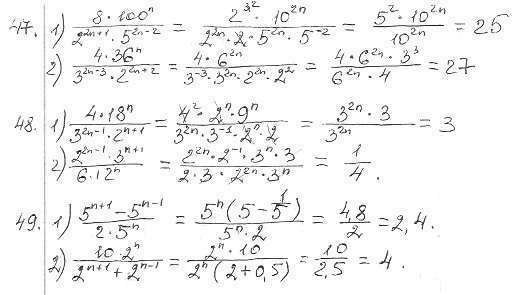 47. 1) 8·100ⁿ / 2²ⁿ⁺¹·5²ⁿ⁻² = 2³²·10²ⁿ / 2²ⁿ·2·5²ⁿ·5⁻² = 5²·10²ⁿ / 10²ⁿ = 25
2) 4·36ⁿ / 3²ⁿ⁻³·2²ⁿ⁺² = 4·6²ⁿ / 3⁻³·3²ⁿ·2²ⁿ·2² = 4·6²ⁿ·3³ / 6²ⁿ·4 = 27
48. 1) 4·18ⁿ / 3²ⁿ⁻¹·2ⁿ⁺¹ = 4²·2ⁿ·9ⁿ / 3²ⁿ·3⁻¹·2ⁿ·2 = 3²ⁿ·3 / 3²ⁿ = 3
2) 2²ⁿ⁻¹·3ⁿ⁺¹ / 6·12ⁿ = 2²ⁿ·2⁻¹·3ⁿ·3 / 2·3·2²ⁿ·3ⁿ = 1/4.
49. 1) 5ⁿ⁺¹-5ⁿ⁻¹ / 2·5ⁿ = 5ⁿ(5-1/5) / 5ⁿ·2 = 4,8/2 = 2,4.
2) 10·2ⁿ / 2ⁿ⁺¹+2ⁿ⁻¹ = 2ⁿ·10 / 2ⁿ(2+0,5) = 10/2,5 = 4.